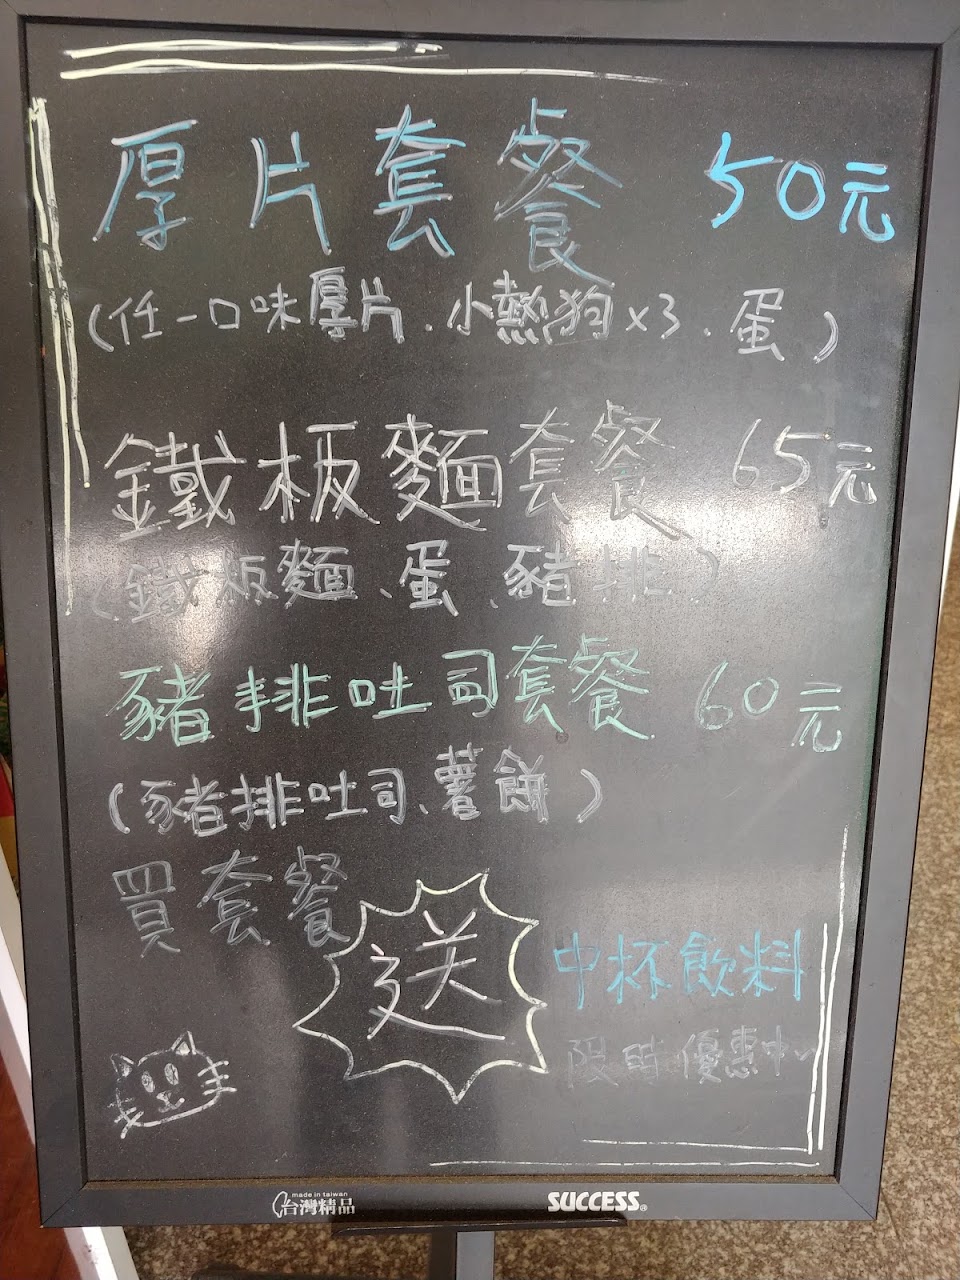 厚片套餐 50元
(任一口味厚片、小熱狗x3、蛋)
鐵板麵套餐 65元
(鐵板麵、蛋、豬排)
豬排吐司套餐 60元
(豬排吐司、薯餅)
買套餐
送
中杯飲料
限時優惠中~
made in taiwan
台灣精品
SUCCESS®